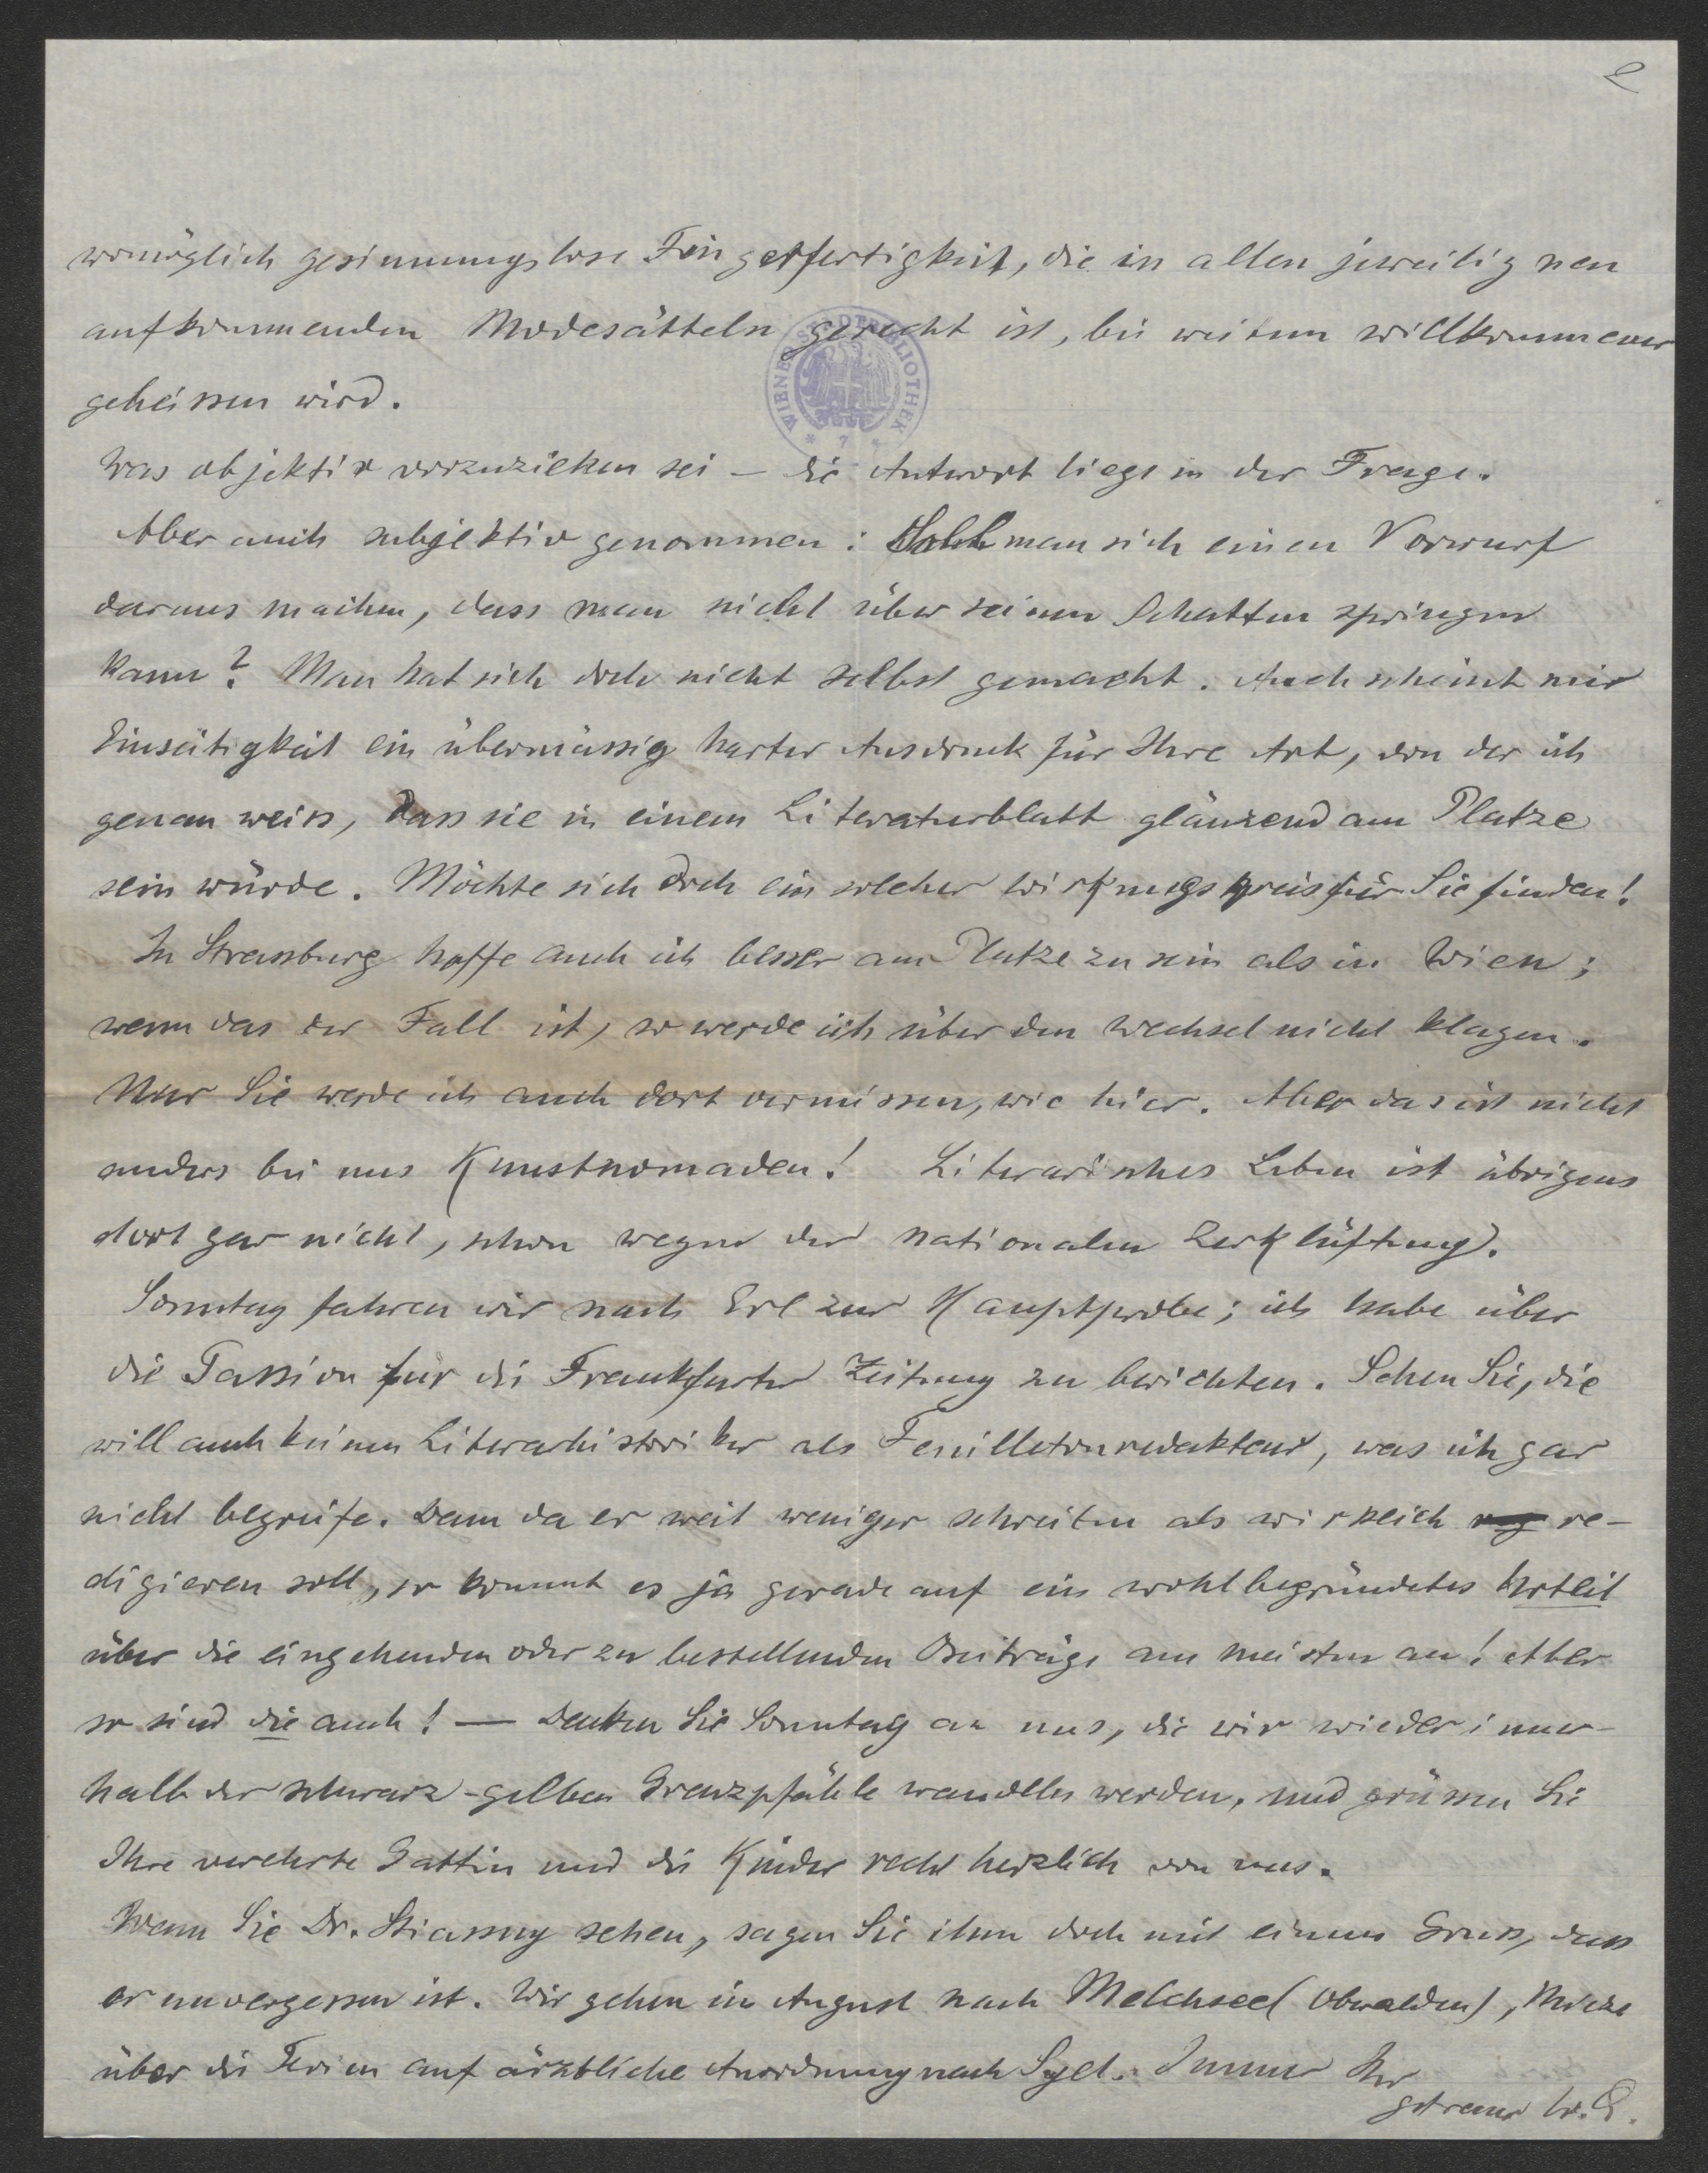 2
womöglich gesinnungslose Fingerfertigkeit, die in allen jeweilig neu
aufkommenden Modesätteln gerecht ist, bei weitem willkommener
geheissen wird.
WIENER STADTBIBLIOTHEK
* 7 *
Was objektiv vorzuziehen sei – die Antwort liegt in der Frage.
Aber auch subjektiv genommen: Soll man sich einen Vorwurf
daraus machen, dass man nicht über seinen Schatten springen
kann? Man hat sich doch nicht selbst gemacht. Auch scheint mir
Einseitigkeit ein übermässig harter Ausdruck für Ihre Art, von der ich
genau weiss, dass sie in einem Literaturblatt glänzend am Platze
sein würde. Möchte sich doch ein solcher Wirkungskreis für Sie finden!
In Strassburg hoffe auch ich besser am Platze zu sein als in Wien;
wenn das der Fall ist, so werde ich über den Wechsel nicht klagen.
Nur Sie werde ich auch dort vermissen, wie hier. Aber das ist nicht
anders bei uns Kunstnomaden! Literarisches Leben ist übrigens
dort gar nicht, schon wegen der nationalen Zerklüftung.
Sonntag fahren wir nach Erl zur Hauptprobe; ich habe über
die Passion für die Frankfurter Zeitung zu berichten. Sehen Sie, die
will auch keinen Literarhistoriker als Feuilletonredakteur, was ich gar
nicht begreife. Denn da er weit weniger schreiben als wirklich re-
digieren soll, so kommt es ja gerade auf ein wohlbegründetes Urteil
über die eingehenden oder zu bestellenden Beiträge am meisten an! Aber
so sind die auch! — Denken Sie Sonntag an uns, die wir wieder inner-
halb der schwarz-gelben Grenzpfähle wandeln werden, und grüssen Sie
Ihre verehrte Gattin und die Kinder recht herzlich von uns.
Wenn Sie Dr. Stiassny sehen, sagen Sie ihm doch mit einem Gruss, dass
er unvergessen ist. Wir gehen im August nach Melchsee (Obwalden),
über die Ferien auf ärztliche Anordnung nach Sylt. Immer Ihr
getreuer W. E.